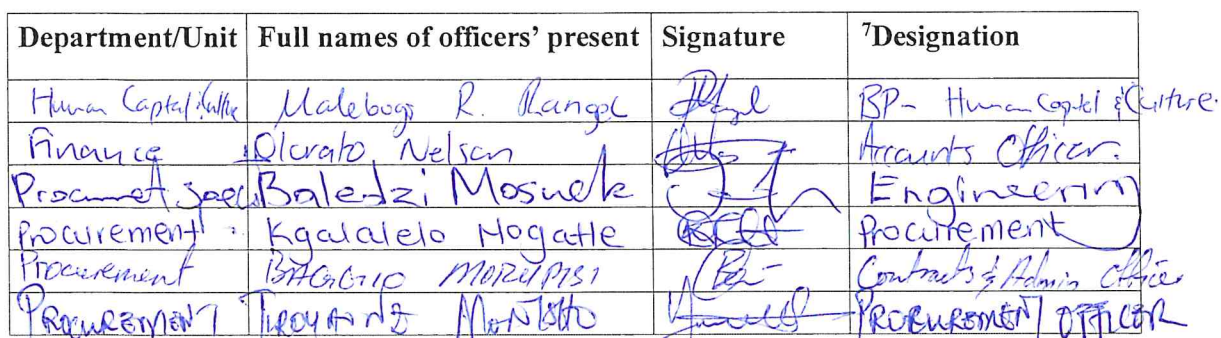 Department/Unit Full names of officers' present Signature ⁷Designation
Human Capital & Culture Malebogo R. Rango BP- Human Capital & Culture
Finance Olorato Nelson Accounts Officer.
Baledzi Moswele Engineering
Procurement Kgalalelo Mogatle Procurement
Procurement MORUPISI Contracts & Admin Officer
PROCUREMENT MONTSHO PROCUREMENT OFFICER